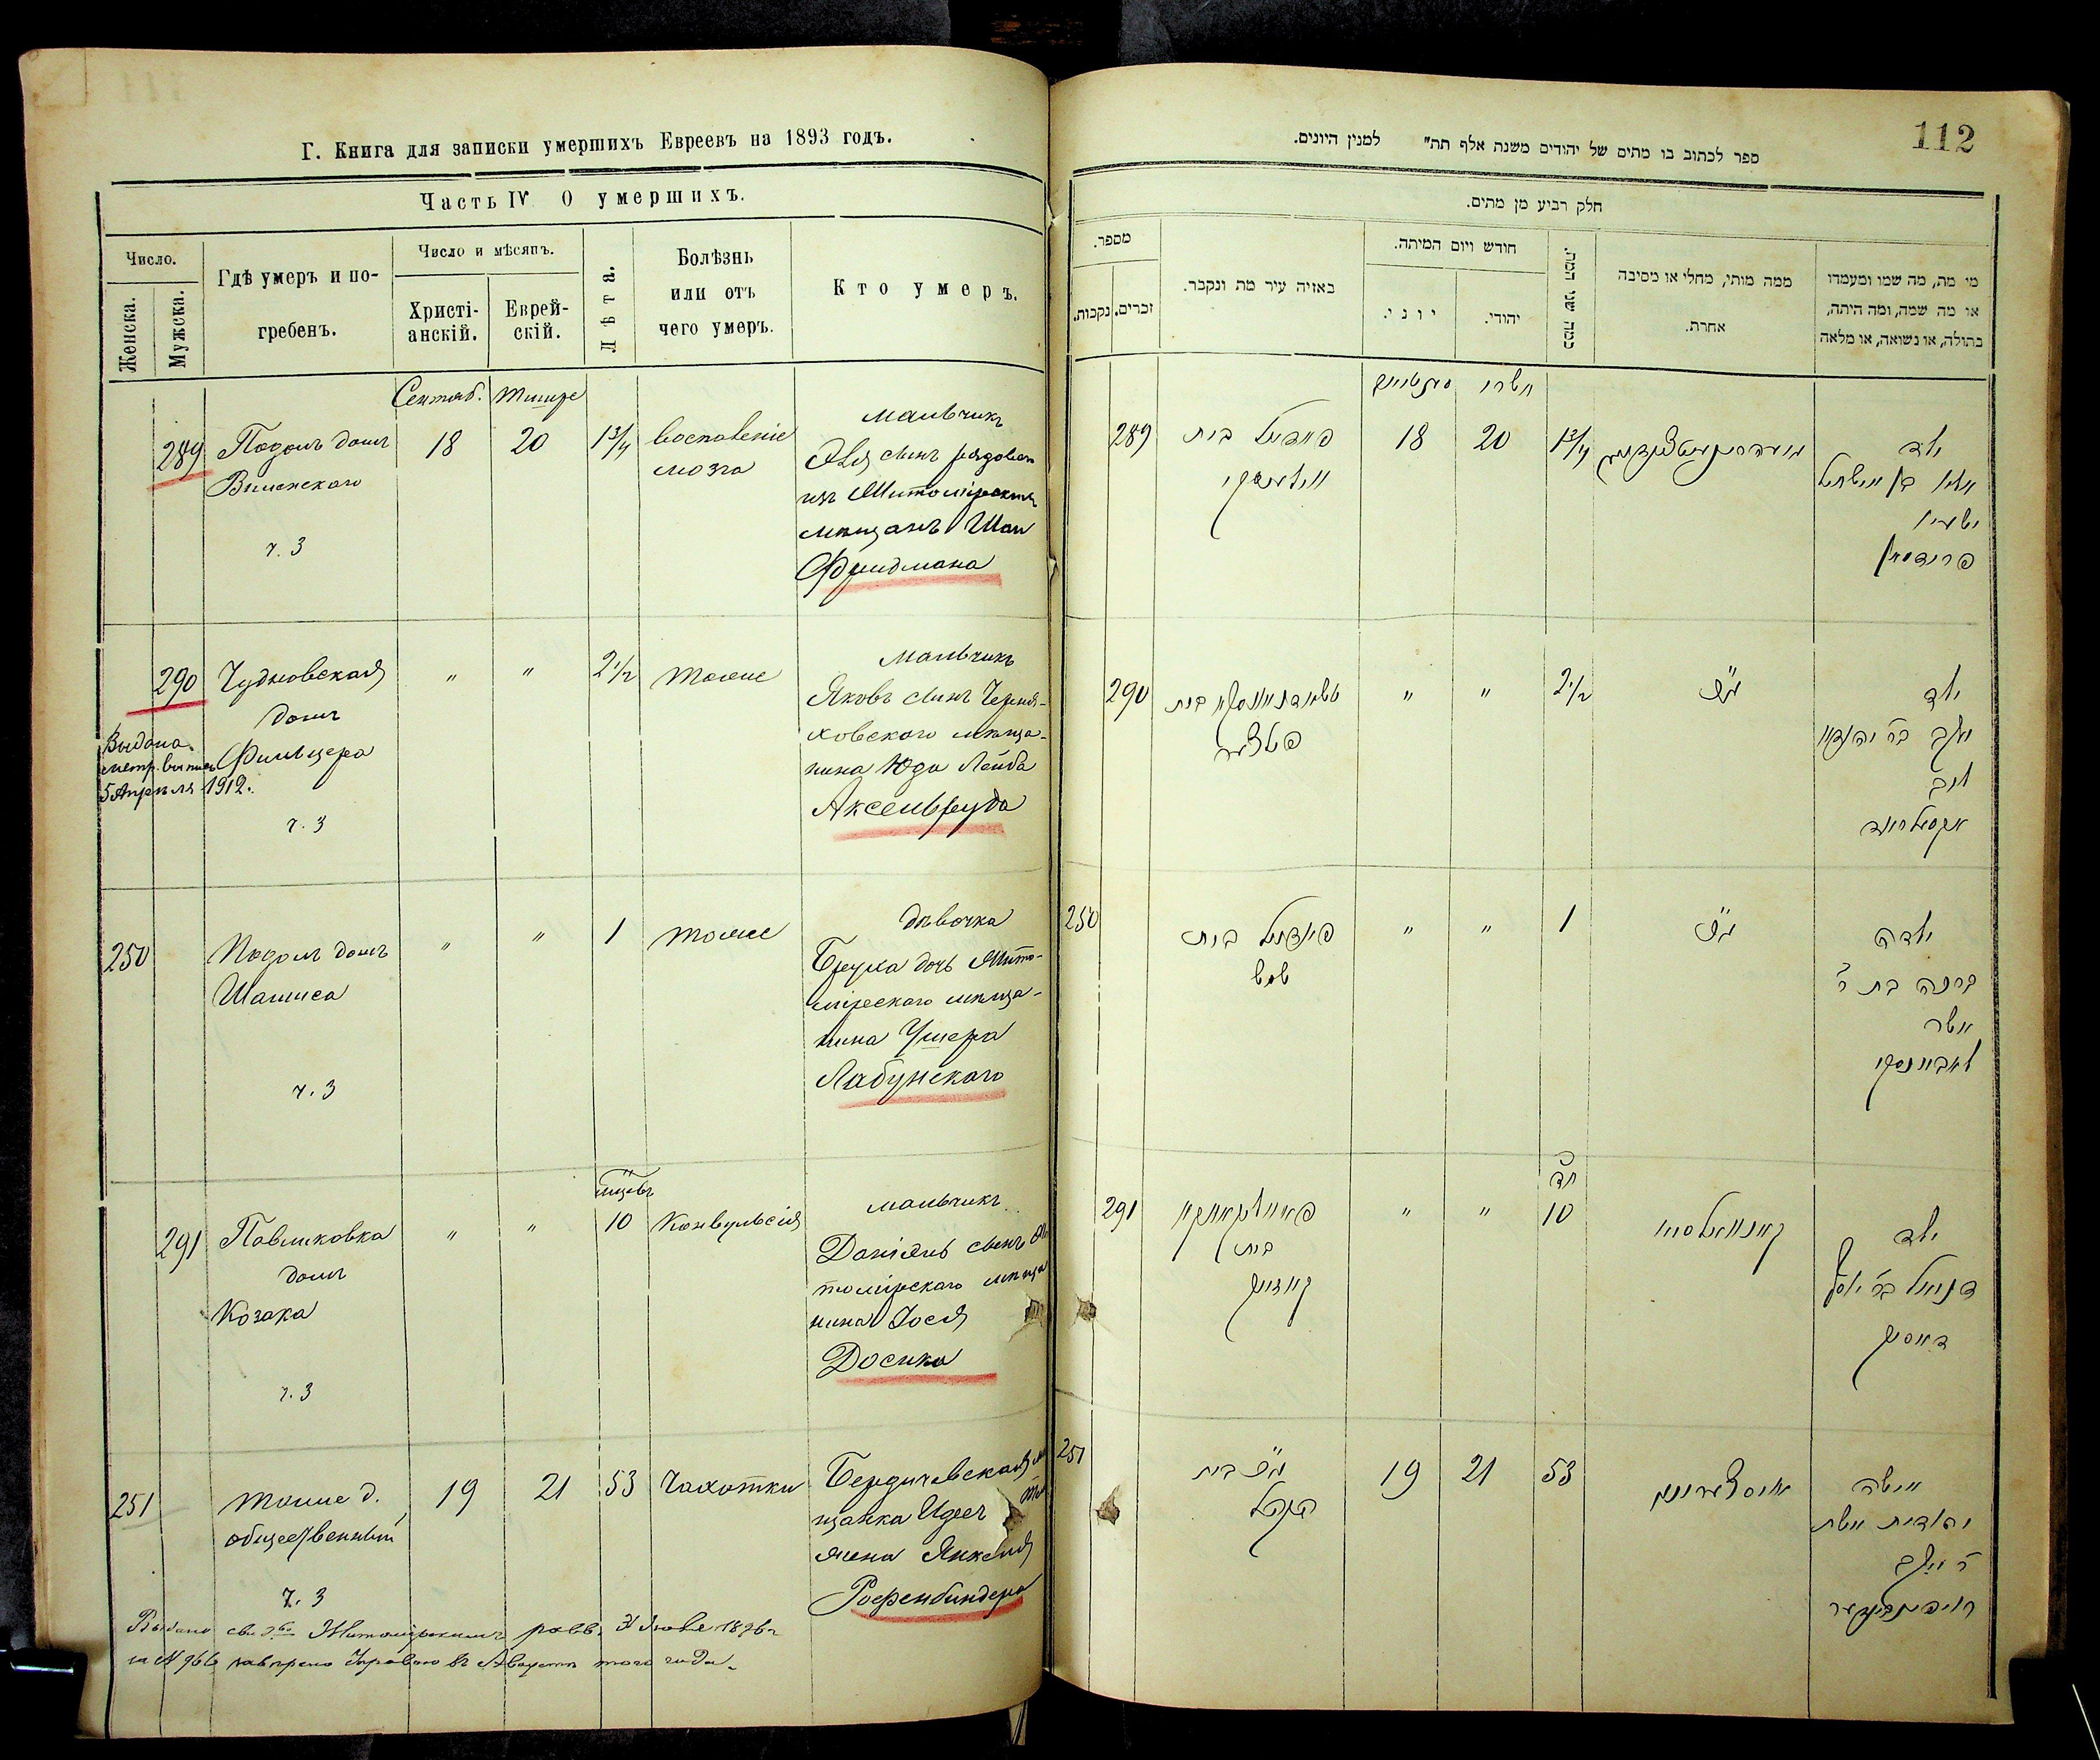 Г. Книга для записки умершихъ Евреевъ на 1893 годъ.
Часть IV О умершихъ.
Число.
Женска.
Мужска.
Гдѣ умеръ и по-
гребенъ.
Число и мѣсяцъ.
Христі-
анскій.
Еврей-
скій.
Лѣта.
Болѣзнь
или отъ
чего умеръ.
Кто умеръ.
Сентяб. Тишре
289
Подолъ домъ
Виленскаго
г. 3
18
20
1 3/4
воспаленіе
мозга
мальчикъ
сынъ рядовой
изъ Житомірскихъ
мѣщанъ
Фридмана
290
Чудновская
домъ
Фильцера
г. 3
Выдана
метр. выпись
5 Апрѣля 1912.
"
"
2 1/2
тоже
мальчикъ
Яковъ сынъ Черня-
ховскаго мѣща-
нина Юда Лейба
Аксельруда
250
Подолъ домъ
Шамиса
г. 3
"
"
1
тоже
дѣвочка
Бруха дочь Жито-
мірскаго мѣща-
нина Ушера
Лабунскаго
291
Павликовка
домъ
Козака
г. 3
"
"
мѣсяцевъ
10
Конвульсія
мальчикъ
Даніель сынъ Жи
томірскаго мѣща
нина Іося
Досика
251
тоже д.
общественный
г. 3
19
21
53
Чахотки
Бердичевская
щанка
жена Янкеля
Рофенбиндера
Выдано Житомірскимъ равв. 1896 г
за № 966 того года.
112
ספר לכתוב בו מתים של יהודים משנה אלף תת" למנין היונים.
חלק רביע מן מתים.
מספר.
נקבות.
זכרים.
באזיה עיר מת ונקבר.
חודש ויום המיתה.
יוני.
יהודי.
כמה שני המת.
ממה מותי, מחלי או מסיבה
אחרת.
מי מת, מה שמו ומעמדו
או מה שמה, ומה היתה,
בתולה, או נשואה, או מלאה
תשרי
289
פאדאל בית
ווילענסקי
18
20
1 3/4
ילד
פרידמאן
290
בית
"
"
2 1/2
ילד
יעקב בר יהודא
ליב
אקסעלראד
250
פאדאל בית
"
"
1
ילדה
ברכה בת ר
אשר
לאבונסקי
291
פאוולקאווקא
בית
קאזאק
"
"
10
קאנוואולסיא
ילד
דניאל בר יוסף
דאסיק
251
בית
הקהל
19
21
53
אשה
יהודית אשת
ר יעקב
ראפינבינדער